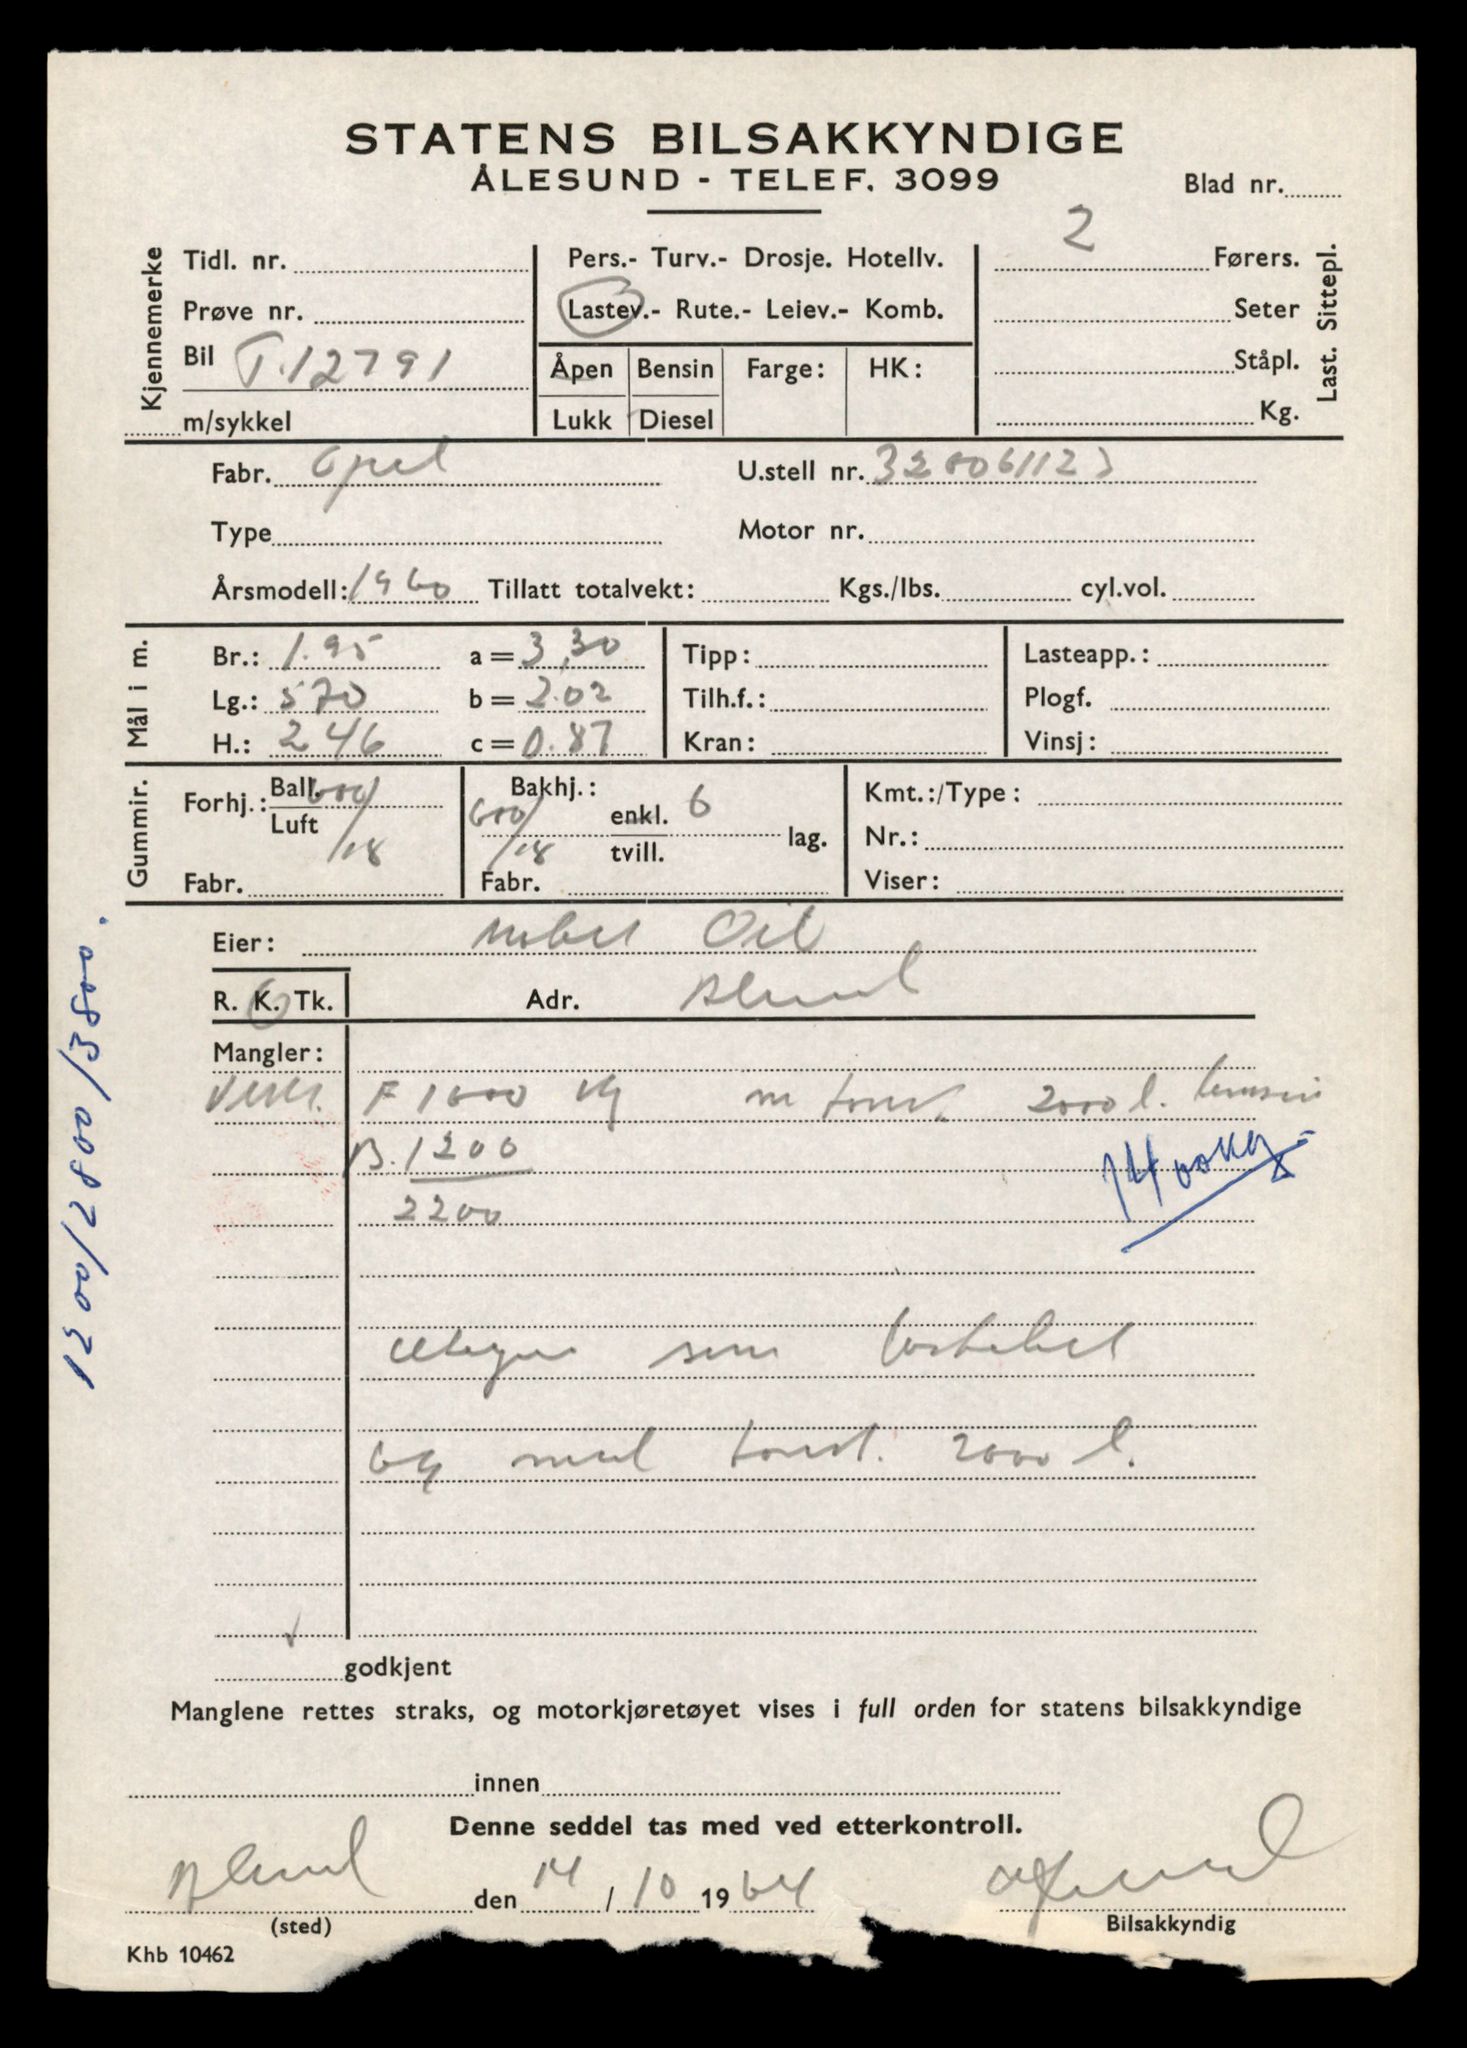 STATENS BILSAKKYNDIGE
ÅLESUND - TELEF. 3099
Blad nr.
Kjennemerke
Tidl. nr.
Prøve nr.
Bil T.12791
m/sykkel
Pers.- Turv.- Drosje. Hotellv.
Lastev.- Rute.- Leiev.- Komb.
Åpen Bensin Farge: HK:
Lukk Diesel
Last. Sittepl.
2 Førers.
Seter
Ståpl.
Kg.
Fabr. Opel U.stell nr. 320061123
Type Motor nr.
Årsmodell: 1960 Tillatt totalvekt: Kgs./lbs. cyl.vol.
Mål i m.
Br.: 1.95 a = 3,30 Tipp: Lasteapp.:
Lg.: 570 b = 2.02 Tilh.f.: Plogf.
H.: 246 c = 0.87 Kran: Vinsj:
Gummir.
Forhj.: Ball. 600/18 Bakhj.: Kmt.:/Type:
Luft 600/18 enkl. 6 lag. Nr.:
tvill.
Fabr. Fabr. Viser:
Eier: Nobel Oil
R. K. Tk. Adr. Ålesund
Mangler:
F 1000 kg m tank 2000 l. bensin
B. 1200 1400 kg
2200
som lastebil
og med tank. 2000 l.
godkjent
Manglene rettes straks, og motorkjøretøyet vises i full orden for statens bilsakkyndige
innen
Denne seddel tas med ved etterkontroll.
Ålesund den 14/10 1964
(sted) Bilsakkyndig
Khb 10462
1200/2800/3800.